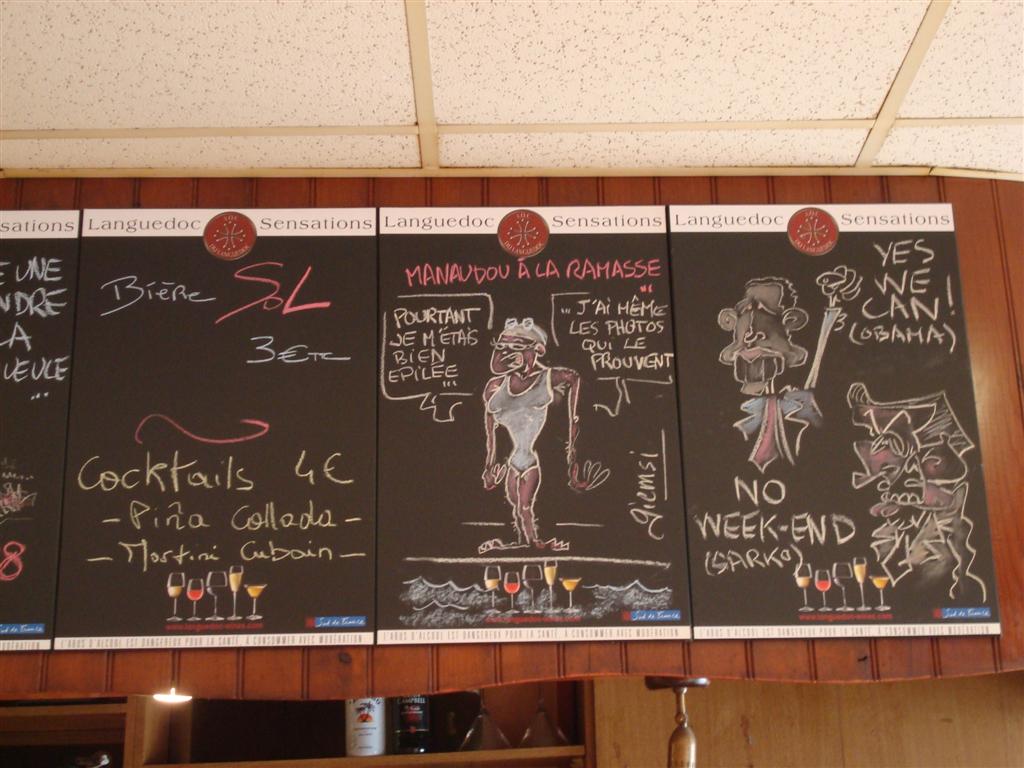 sations
E UNE
NDRE
LA
UEULE
...
8
Sud de France
Languedoc Sensations
Bière SOL
3€TTC
Cocktails 4€
- Piña Collada -
- Martini Cubain -
www.languedoc-wines.com
Sud de France
L'ABUS D'ALCOOL EST DANGEREUX POUR LA SANTÉ A CONSOMMER AVEC MODÉRATION
Languedoc Sensations
MANAUDOU À LA RAMASSE
...
POURTANT
JE M'ÉTAIS
BIEN
EPILÉE
...
... J'AI MÊME
LES PHOTOS
QUI LE
PROUVENT
giemsi
Sud de France
L'ABUS D'ALCOOL EST DANGEREUX POUR LA SANTÉ A CONSOMMER AVEC MODÉRATION
Languedoc Sensations
YES
WE
CAN!
(OBAMA)
NO
WEEK-END
(SARKO)
www.languedoc-wines.com
Sud de France
L'ABUS D'ALCOOL EST DANGEREUX POUR LA SANTÉ A CONSOMMER AVEC MODÉRATION
CAMPBELL